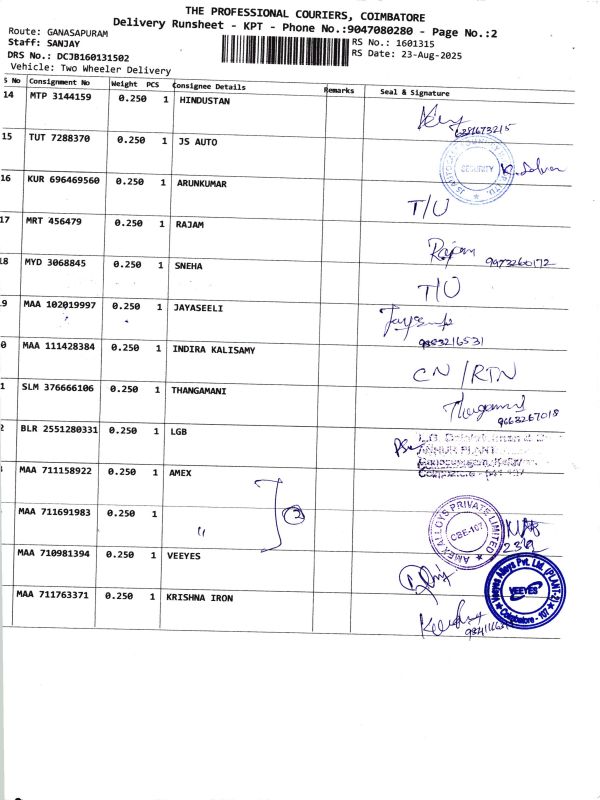 THE PROFESSIONAL COURIERS, COIMBATORE
Delivery Runsheet - KPT - Phone No.:9047080280 - Page No.:2
Route: GANASAPURAM
Staff: SANJAY
RS No.: 1601315
DRS No.: DCJB160131502
RS Date: 23-Aug-2025
Vehicle: Two Wheeler Delivery
S No Consignment No Weight PCS Consignee Details Remarks Seal & Signature
14 MTP 3144159 0.250 1 HINDUSTAN
15 TUT 7288370 0.250 1 JS AUTO
SECURITY
16 KUR 696469560 0.250 1 ARUNKUMAR T/U
17 MRT 456479 0.250 1 RAJAM Rajam
9973260172
18 MYD 3068845 0.250 1 SNEHA T/U
9 MAA 102019997 0.250 1 JAYASEELI
0 MAA 111428384 0.250 1 INDIRA KALISAMY CN/RTN
1 SLM 376666106 0.250 1 THANGAMANI
9663267018
2 BLR 2551280331 0.250 1 LGB
MAA 711158922 0.250 1 AMEX
MAA 711691983 0.250 1 " 2
AMEX ALLOYS PRIVATE LIMITED
CBE-107
MAA 710981394 0.250 1 VEEYES
Veeyes Alloys Pvt. Ltd. (PLANT-2)
VEEYES
Coimbatore - 107
MAA 711763371 0.250 1 KRISHNA IRON